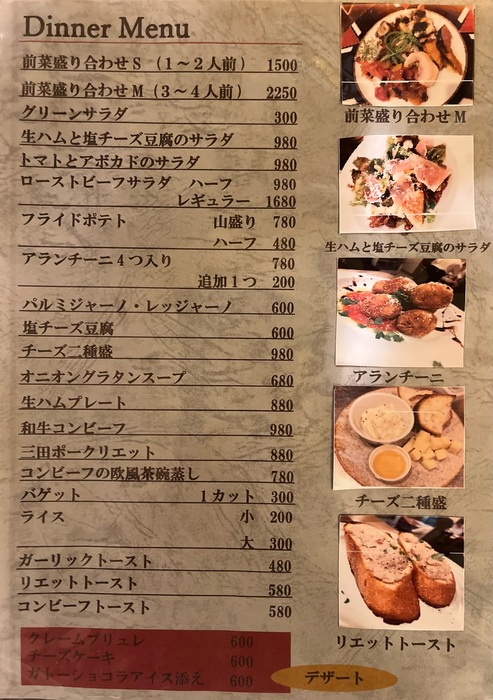 Dinner Menu
前菜盛り合わせS （1〜2人前） 1500
前菜盛り合わせM（3〜4人前） 2250
グリーンサラダ 300
生ハムと塩チーズ豆腐のサラダ 980
トマトとアボカドのサラダ 980
ローストビーフサラダ ハーフ 980
レギュラー 1680
フライドポテト 山盛り 780
ハーフ 480
アランチーニ4つ入り 780
追加1つ 200
パルミジャーノ・レッジャーノ 600
塩チーズ豆腐 600
チーズ二種盛 980
オニオングラタンスープ 680
生ハムプレート 880
和牛コンビーフ 980
三田ポークリエット 880
コンビーフの欧風茶碗蒸し 780
バゲット 1カット 300
ライス 小 200
大 300
ガーリックトースト 480
リエットトースト 580
コンビーフトースト 580
クレームブリュレ 600
チーズケーキ 600
ガトーショコラアイス添え 600
デザート
前菜盛り合わせM
生ハムと塩チーズ豆腐のサラダ
アランチーニ
チーズ二種盛
リエットトースト